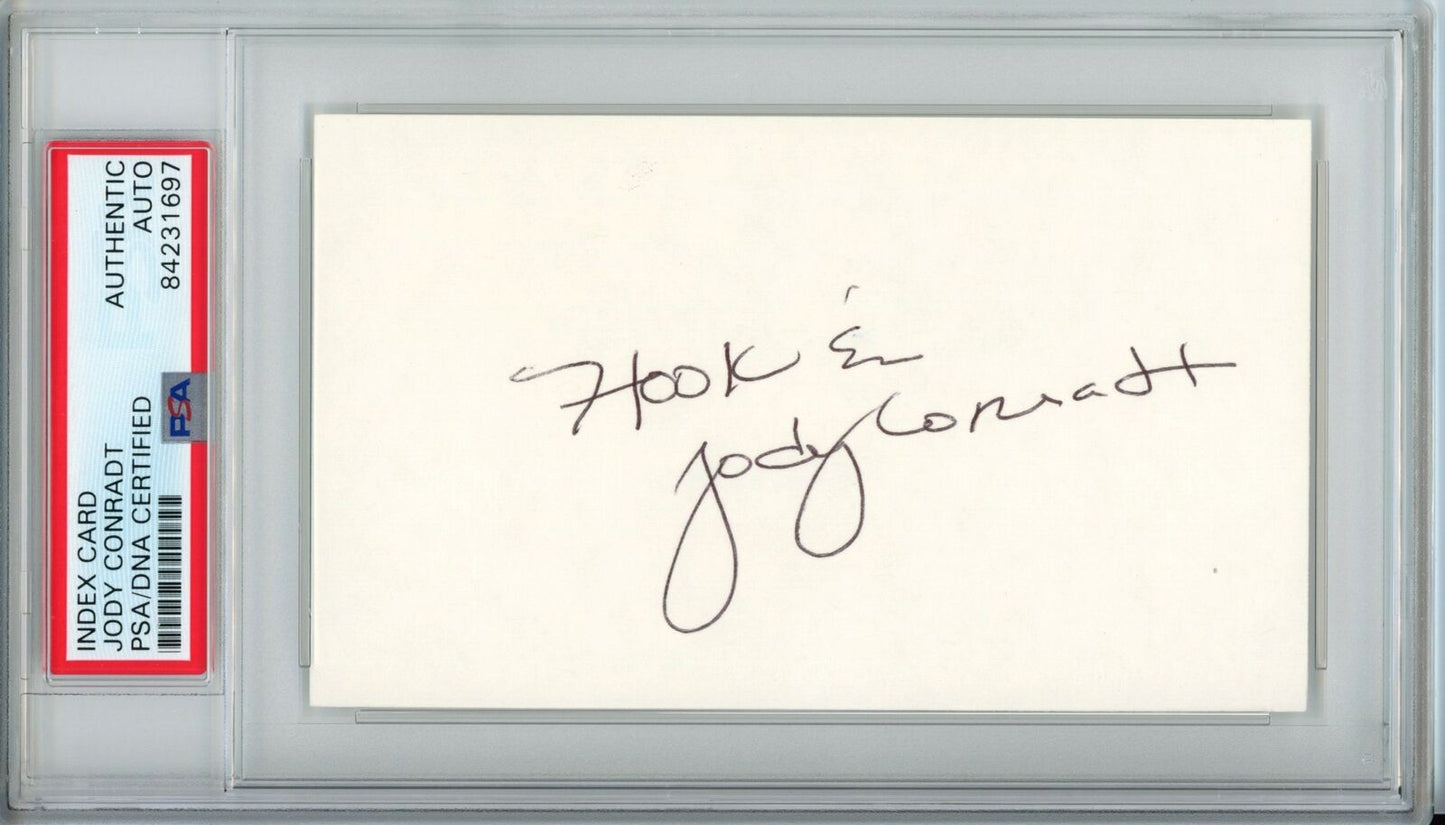 INDEX CARD
JODY CONRADT
PSA/DNA CERTIFIED
AUTHENTIC
AUTO
84231697
PSA
Hook 'Em
Jody Conradt